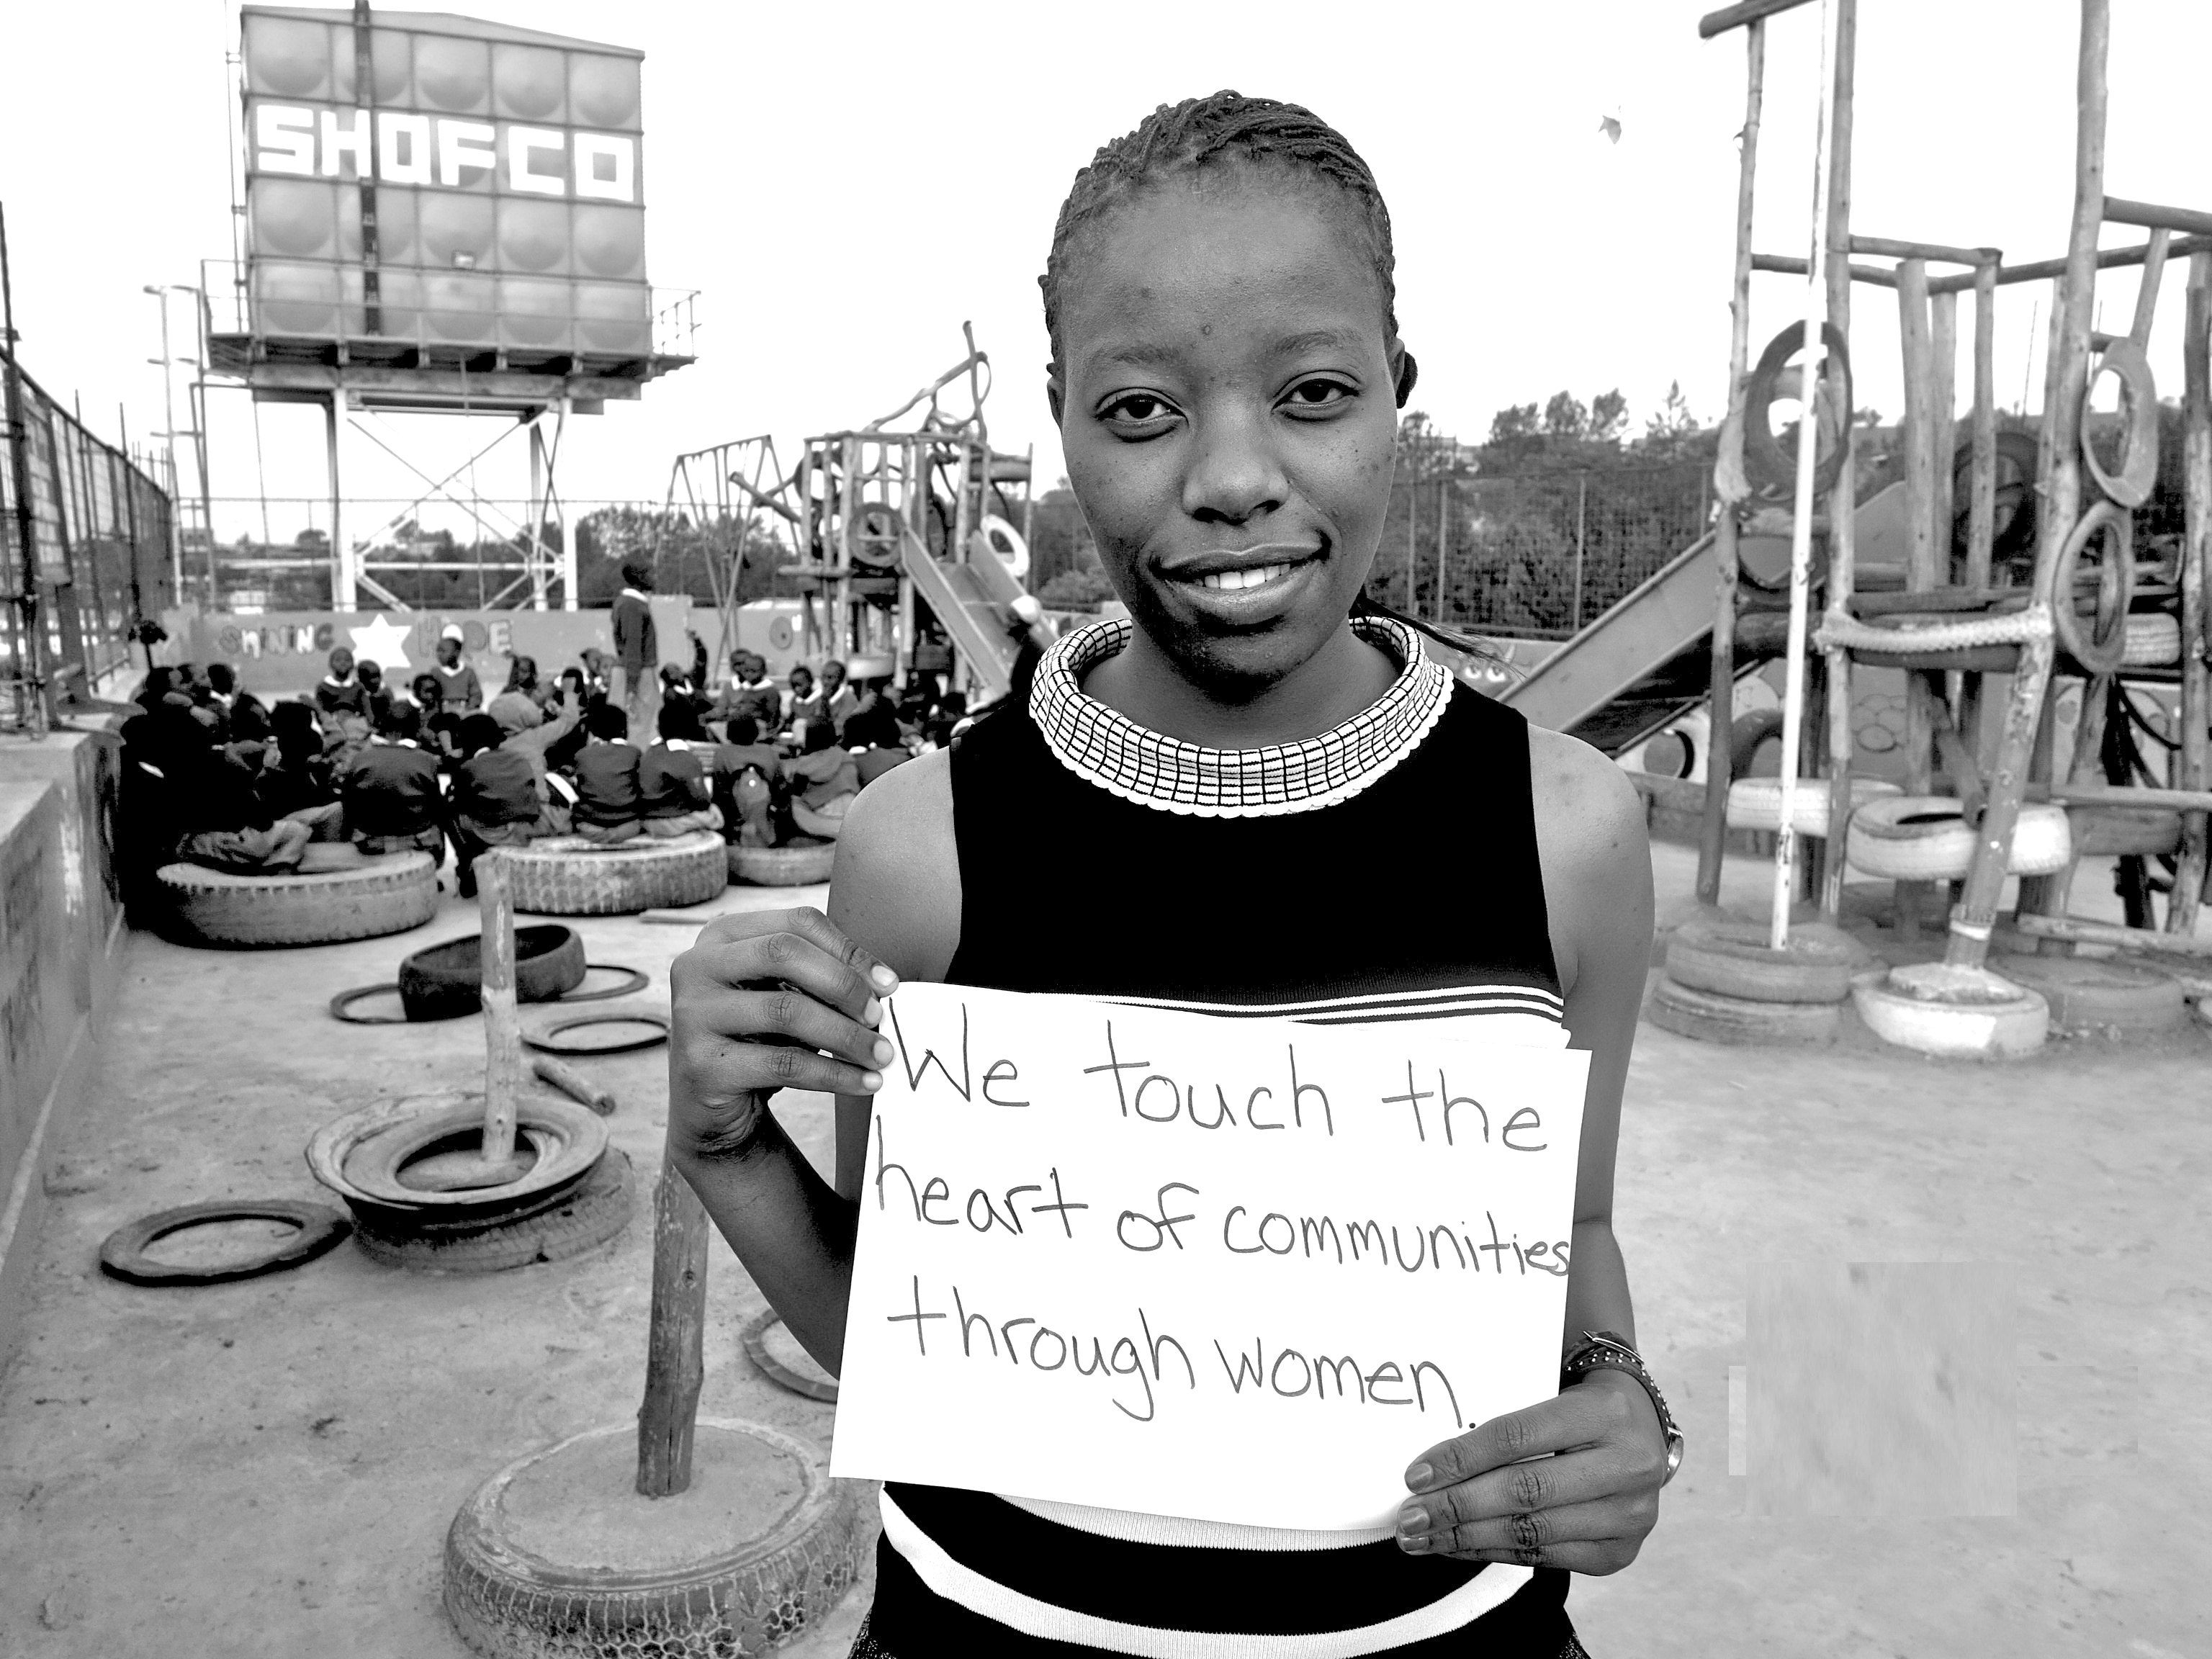 SHOFCO
SHINING HOPE
We touch the
heart of communities
through women.